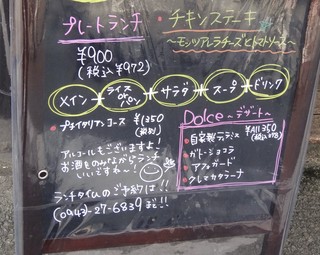 プレートランチ
・チキンステーキ
～モッツアレラチーズとトマトソース～
¥900
(税込¥972)
メイン
ライス
or
パン
サラダ
スープ
ドリンク
・プチイタリアンコース ¥1350
(税別)
アルコールもございますよ!
お酒をのみながらランチ
いいですね～!
ランチタイムのご予約は!!
(0943)-27-6839まで!!
Dolce ～デザート～
・自家製ジェラート
・ガトーショコラ
・アフォガード
・クレマカタラーナ
All 350
(税込378)